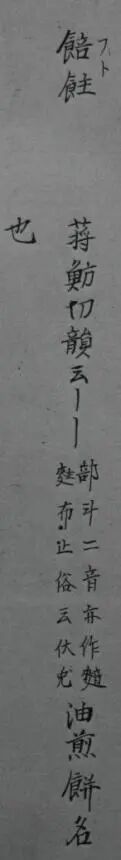 フト
餢飳
蒋魴切韻云――
部斗二音亦作䴺
𪌘布止俗云伏兎
油煎餅名
也